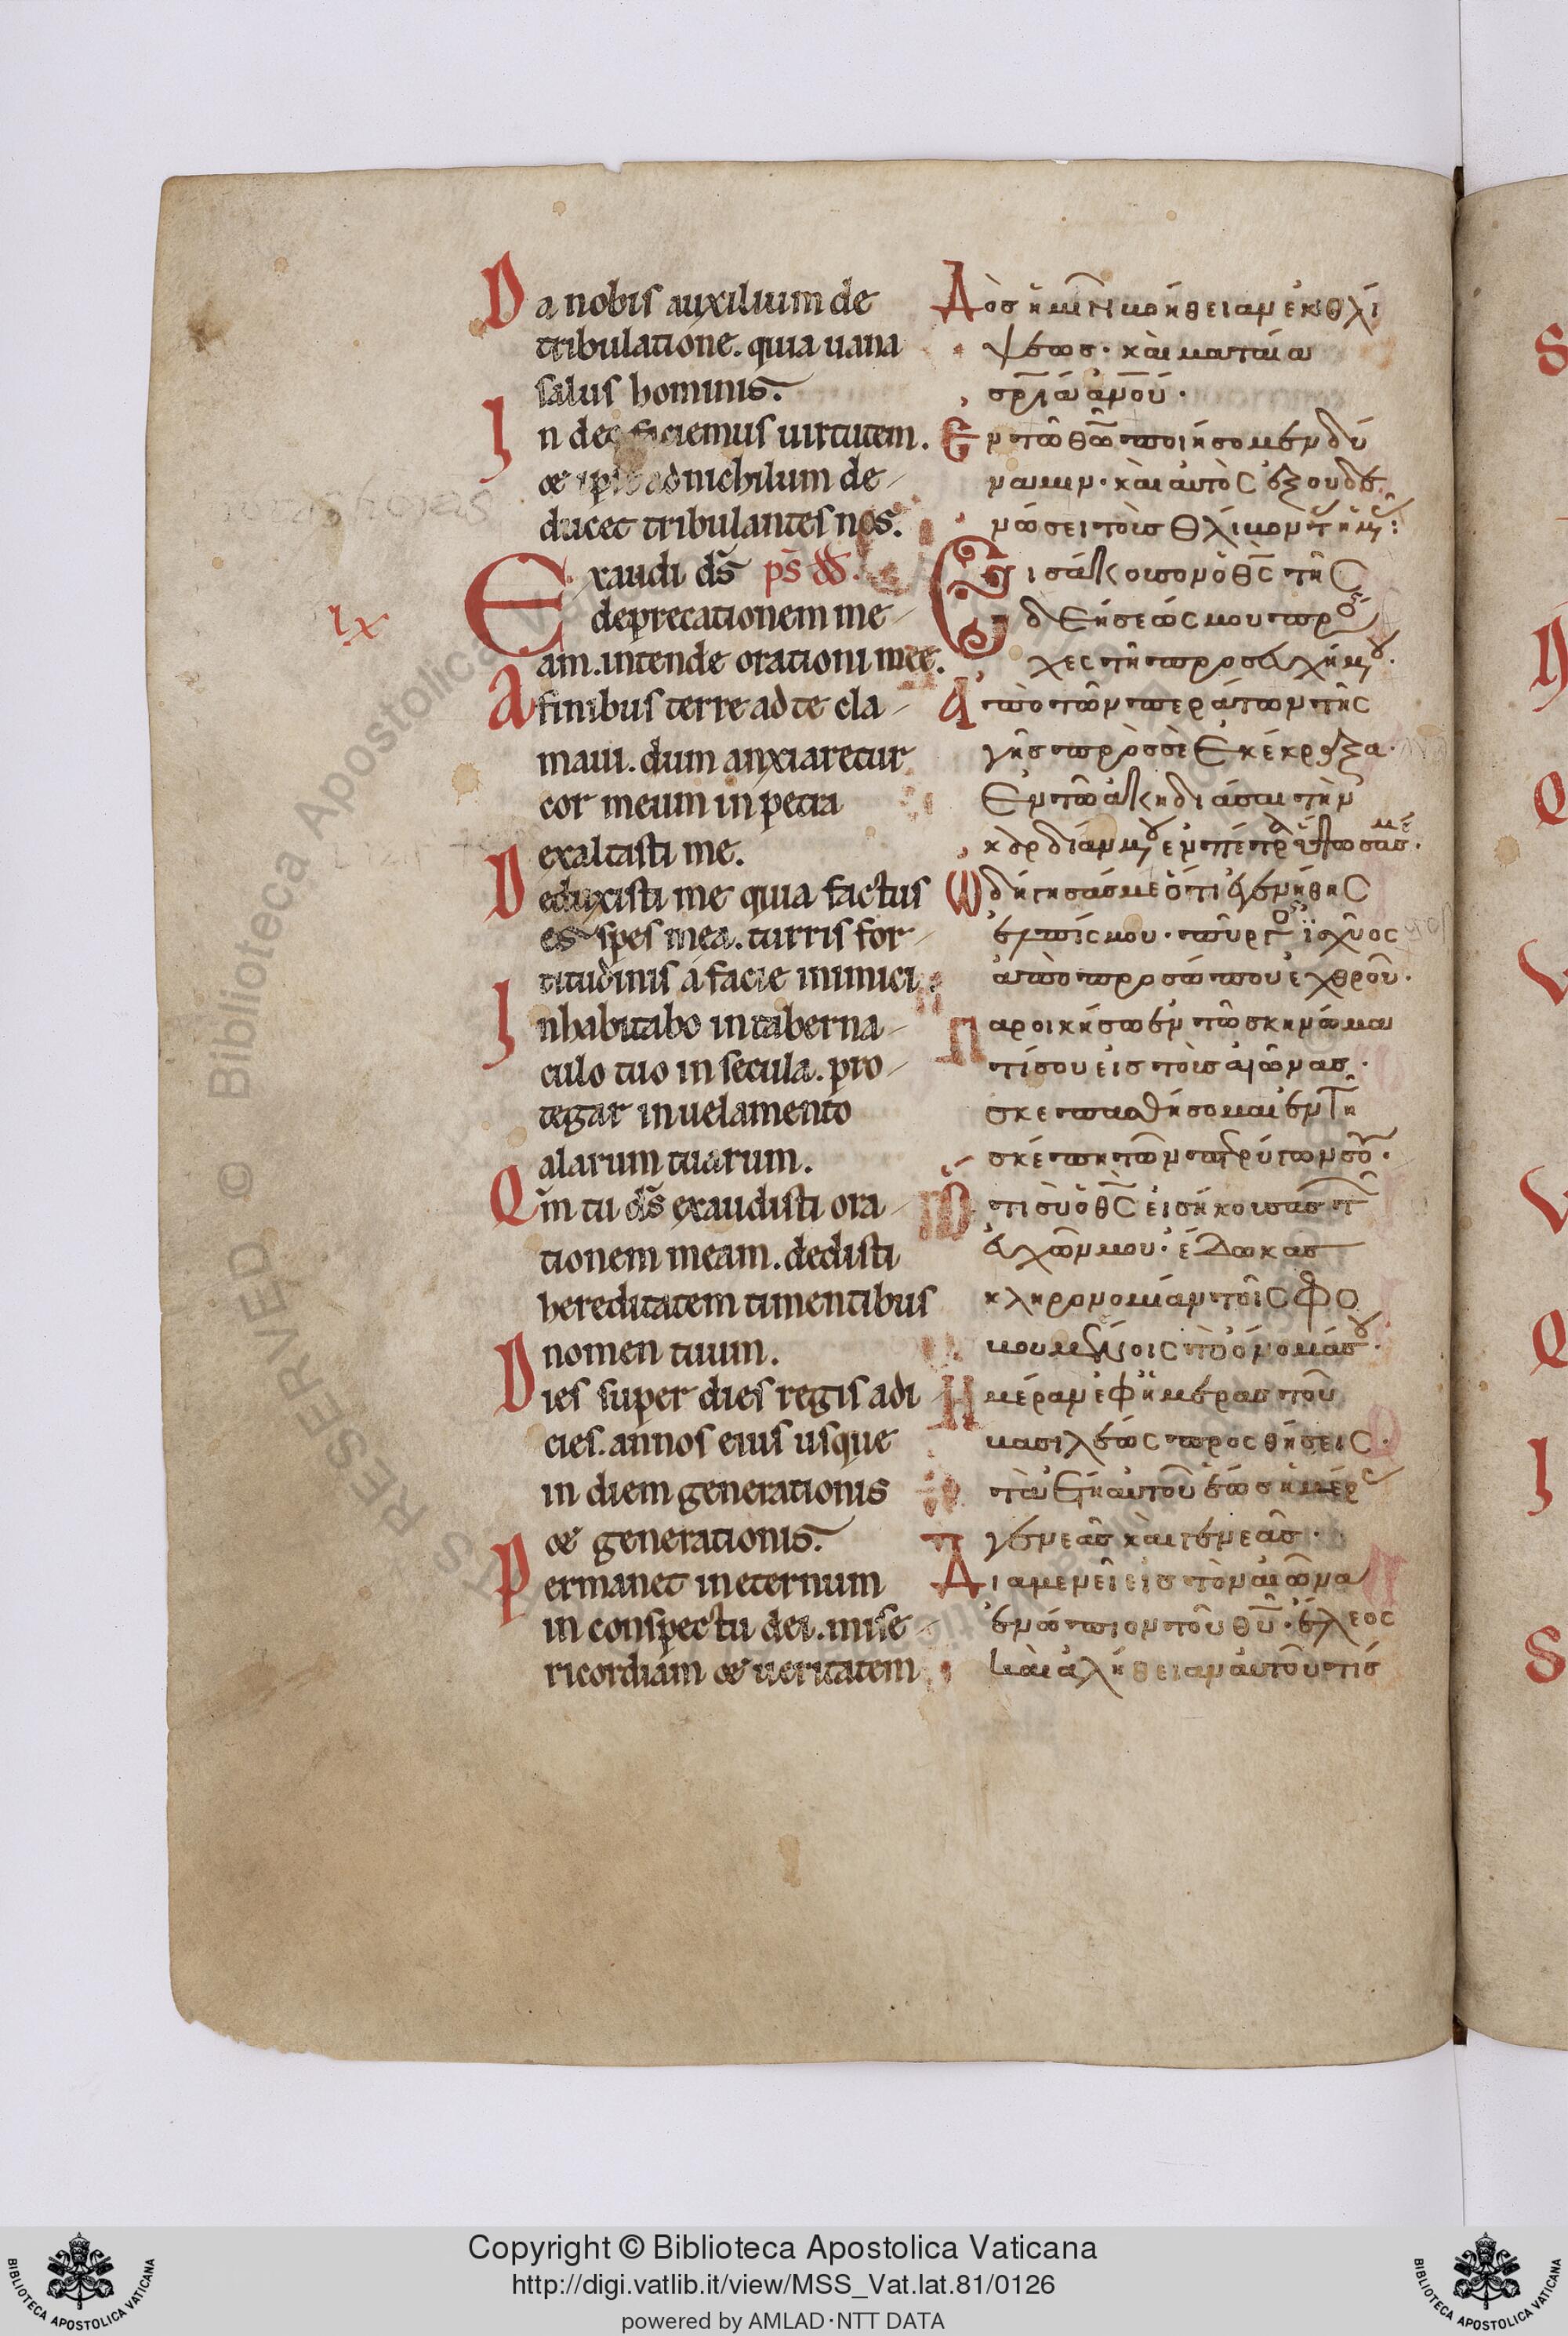 Da nobis auxilium de
tribulatione. quia uana
salus hominis.
In deo faciemus uirtutem.
& ipse ad nichilum de-
ducet tribulantes nos.
Exaudi ds̄ ps̄ dd.
deprecationem me-
lx
am. intende orationi mee.
A finibus terre ad te cla-
maui. dum anxiaretur
cor meum in petra
exaltasti me.
Deduxisti me quia factus
es spes mea. turris for-
titudinis a facie inimici.
Inhabitabo in taberna-
culo tuo in secula. pro-
tegar in uelamento
alarum tuarum.
Qm̄ tu ds̄ exaudisti ora-
tionem meam. dedisti
hereditatem timentibus
nomen tuum.
Dies super dies regis adi
cies. annos eius usque
in diem generationis
& generationis.
Permanet in eternum
in conspectu dei. mise-
ricordiam & ueritatem
Δὸσ ἡμῖν βοήθειαν ἐκ θλί
ψεωσ· καὶ ματαία
σρ̄ία ἀν̄ου·
Ἐν τῶ θω̄ ποιήσομεν δύ
ναμιν· καὶ αὐτὸς ἐξουδε
νώσει τοὺσ θλίβοντ ἡμ:
Εἰσάκουσον ὁ θς̄ τῆς
δεήσεώς μου πρό
χες τῆ προσευχῆ μου·
Ἀπὸ τῶν περάτων τῆς
γῆσ πρὸσ σὲ ἐκέκραξα·
Ἐν τῶ ἀκηδιάσαι τὴν
καρδίαν μου ἐν πέτρα ὕψωσάσ με·
Ὡδήγησάσ με ὅτι ἐγενήθης
ἐλπίς μου· πύργος ἰσχύος
ἀπὸ προσώπου ἐχθροῦ·
Παροικήσω ἐν τῶ σκηνώμα
τί σου εἰσ τοὺσ αἰῶνασ·
σκεπασθήσομαι ἐν τῆ
σκέπη τῶν πτερύγων σου·
Ὅτι σὺ ὁ θς̄ εἰσήκουσασ τ
εὐχῶν μου· ἔδωκασ
κληρονομίαν τοῖς φο
βουμένοις τὸ ὄνομά σου·
Ἡμέραν ἐφ ἡμέρασ τοῦ
βασιλέως προσθήσεις·
τὰ ἔτη αὐτοῦ ἕωσ ἡμέρ
γενεᾶσ καὶ γενεᾶσ·
Διαμενεῖ εἰσ τὸν αἰῶνα
ἐνώπιον τοῦ θῡ· ἔλεος
καὶ ἀλήθειαν αὐτοῦ τίσ
Copyright © Biblioteca Apostolica Vaticana
http://digi.vatlib.it/view/MSS_Vat.lat.81/0126
powered by AMLAD·NTT DATA